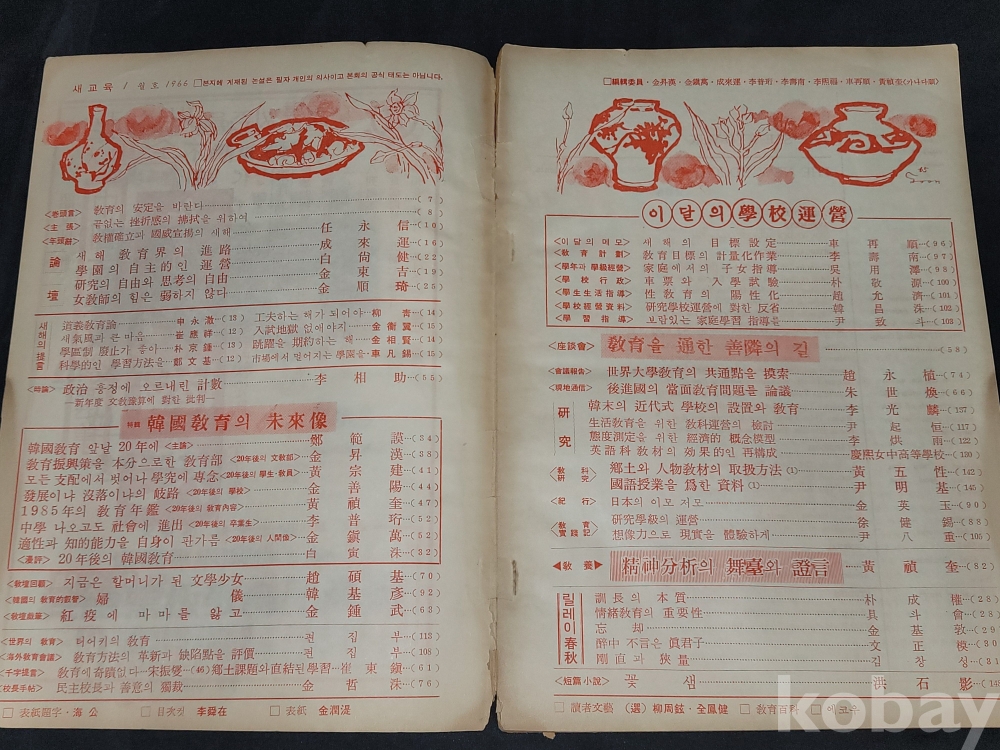 새교육 1월호 1966 □본지에 게재된 논설은 필자 개인의 의사이고 본회의 공식 태도는 아닙니다.
<卷頭言> 敎育의 安定을 바란다 (7)
<主張> 끝없는 挫折感의 拂拭을 위하여 (8)
<年頭辭> 敎權確立과 國威宣揚의 새해 任永信 (10)
論壇
새해 敎育界의 進路 成來運 (16)
學園의 自主的인 運營 白尙健 (22)
研究의 自由와 思考의 自由 金東吉 (19)
女敎師의 힘은 弱하지 않다 金順琦 (25)
새해의 提言
道義敎育論 申永澈 (13) 工夫하는 해가 되어야 柳靑 (14)
새氣風과 큰 마음 崔應祥 (12) 入試地獄 없애야지 金衡翼 (15)
學區制 廢止가 좋아 朴京鍾 (13) 跳躍을 期約하는 해 金相賢 (14)
科學的인 學習方法을 鄭文基 (12) 市場에서 멀어지는 學園을 車凡錫 (15)
<時論> 政治 흥정에 오르내린 計數 李相助 (55)
—新年度 文敎豫算에 對한 批判—
特輯 韓國敎育의 未來像
韓國敎育 앞날 20年에 <主論> 鄭範謨 (34)
敎育振興策을 本分으로한 敎育部 <20年後의 文敎部> 金昇漢 (38)
모든 支配에서 벗어나 學究에 專念 <20年後의 學生·敎員> 黃宗建 (41)
發展이냐 沒落이냐의 岐路 <20年後의 學校> 金善陽 (44)
1985年의 敎育年鑑 <20年後의 敎育內容> 黃禎奎 (47)
中學 나오고도 社會에 進出 <20年後의 卒業生> 李普珩 (52)
適性과 知的能力을 自身이 판가름 <20年後의 人間像> 金鎭萬 (52)
<漫評> 20年後의 韓國敎育 白寅洙 (32)
<敎壇回顧> 지금은 할머니가 된 文學少女 趙碩基 (70)
<韓國의 敎育的哲智> 婦儀 韓基彦 (92)
<敎壇戱筆> 紅疫에 마마를 앓고 金鍾武 (63)
<世界의 敎育> 터어키의 敎育 편집부 (113)
<海外敎育會議> 敎育方法의 革新과 缺陷點을 評價 편집부 (108)
<千字提言> 敎育에 奇蹟없다 宋振燮 (46) 鄕土課題와 直結된 學習 崔東鎭 (61)
<校長手帖> 民主校長과 善意의 獨裁 金哲洙 (76)
□表紙題字·海公 □目次컷 李舜在 □表紙 金潤湜
□編輯委員·金外漢·金鐵萬·成來運·李普珩·李壽南·李熙福·車再顯·黃禎奎〈가나다順〉
이달의 學校運營
<이달의 메모> 새해의 目標設定 車再顯 (96)
<敎育計劃> 敎育目標의 計量化作業 李壽南 (97)
<學年과 學級經營> 家庭에서의 子女指導 吳用澤 (98)
<學校行政> 車票와 入學試驗 朴敬源 (100)
<學生生活指導> 性敎育의 陽性化 趙允濟 (101)
<學校經營資料> 研究學校運營에 對한 反省 韓昌洙 (102)
<學習指導> 보람있는 家庭學習 指導을 尹致斗 (103)
<座談會> 敎育을 通한 善隣의 길 (58)
<會議報告> 世界大學敎育의 共通點을 摸索 趙永植 (74)
<現地通信> 後進國의 當面敎育問題를 論議 朱世煥 (66)
研究
韓末의 近代式 學校의 設置와 敎育 李光麟 (127)
生活敎育을 위한 敎科運營의 檢討 尹起恒 (117)
態度測定을 위한 經濟的 槪念模型 李烘雨 (122)
英語科 敎材의 效果的인 再構成 慶熙女中高等學校 (130)
<敎科研究> 鄕土와 人物敎材의 取扱方法 (1) 黃五性 (142)
國語授業을 爲한 資料 (1) 尹明基 (145)
<紀行> 日本의 이모저모 金英玉 (90)
<敎育實踐記> 研究學級의 運營 徐健錫 (88)
想像力으로 現實을 體驗하게 尹八重 (105)
◀敎養▶ 精神分析의 舞臺와 證言 黃禎奎 (82)
릴레이春秋
訓長의 本質 朴成權 (28)
情緖敎育의 重要性 具斗會 (28)
忘却 金基敦 (29)
醉中 不言은 眞君子 文正模 (30)
剛直과 狹量 김창성 (31)
<短篇小說> 꽃샘 洪石影 (148)
□讀者文藝 (選) 柳周鉉·全鳳健 □敎育百科 □에코우
kobay